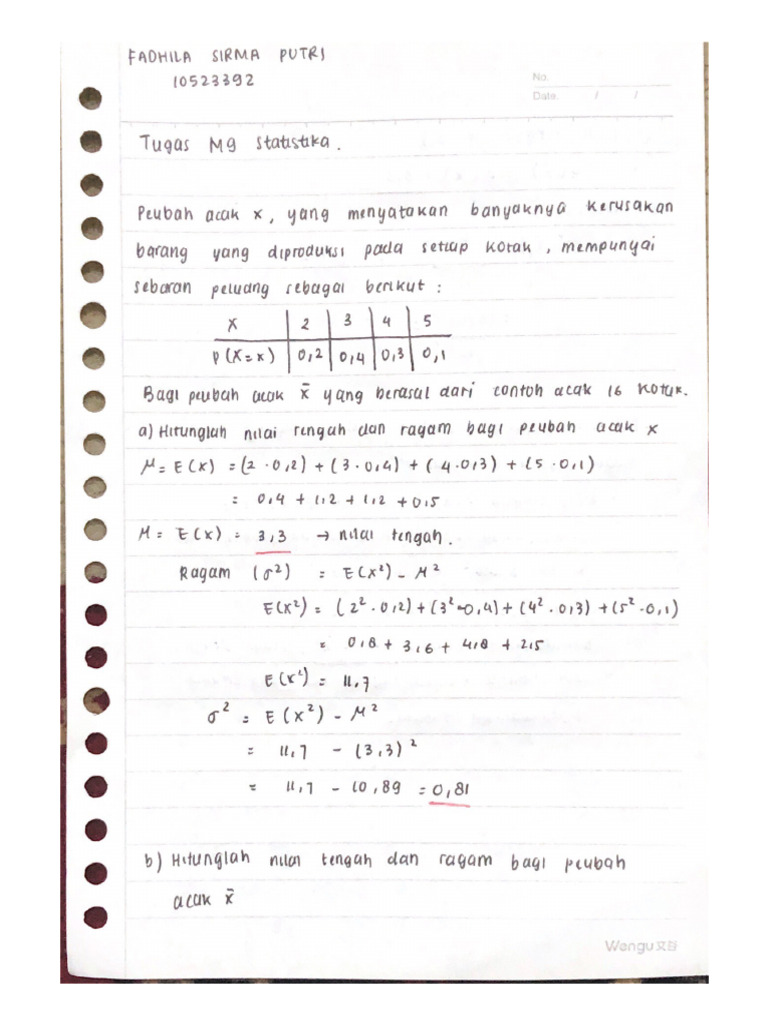 FADHILA SIRMA PUTRI
10523392
No.
Date. / /
Tugas M9 Statistika.
Peubah acak x, yang menyatakan banyaknya kerusakan
barang yang diproduksi pada setiap kotak, mempunyai
sebaran peluang sebagai berikut :
X | 2 | 3 | 4 | 5
P(X=x) | 0,2 | 0,4 | 0,3 | 0,1
Bagi peubah acak x̄ yang berasal dari contoh acak 16 kotak.
a) Hitunglah nilai tengah dan ragam bagi peubah acak x
μ = E(x) = (2 · 0,2) + (3 · 0,4) + (4 · 0,3) + (5 · 0,1)
= 0,4 + 1,2 + 1,2 + 0,5
μ = E(x) = 3,3 → nilai tengah.
Ragam (σ²) = E(x²) - μ²
E(x²) = (2² · 0,2) + (3² · 0,4) + (4² · 0,3) + (5² · 0,1)
= 0,8 + 3,6 + 4,8 + 2,5
E(x²) = 11,7
σ² = E(x²) - μ²
= 11,7 - (3,3)²
= 11,7 - 10,89 = 0,81
b) Hitunglah nilai tengah dan ragam bagi peubah
acak x̄
Wengu文谷